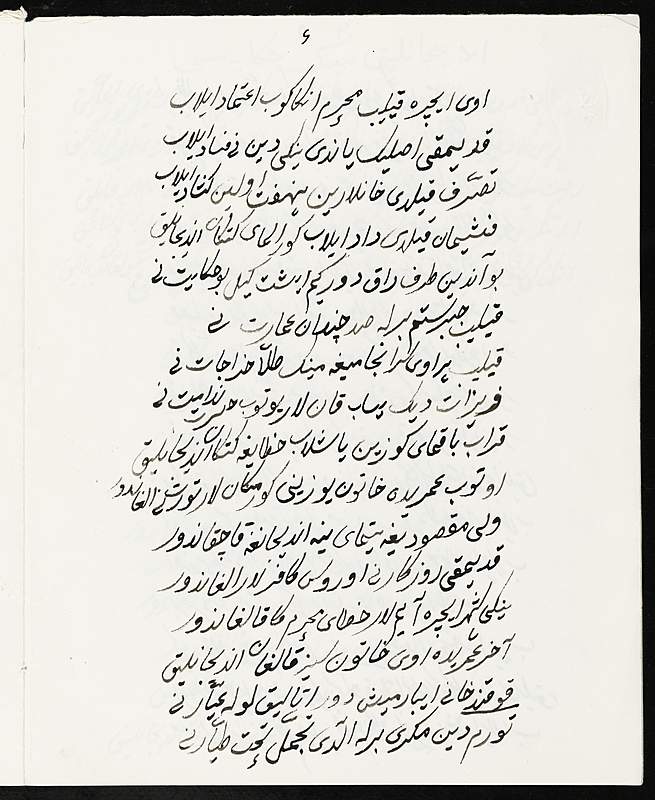 ۶
اوی ایچره قیلیب محرم انکا کوب اعتماد ایلاب
قدیمقی اصلیک یاندی ینکی دین نی فساد ایلاب
تصرف قیلدی خانلارین اولین کشاد ایلاب
فشیمان قیلدی داد ایلاب کورالمای کتکان اندیجانلیق
بو آندین طرفه راق دور کیم ایشت کیل بو حکایت نی
قیلیب برله صد چندان عمارت نی
قیلیب بر اوی سرانجامیغه مینک طلا خراجات نی
دیک یوتوب ندامت نی
قراب باقمای کوزین یاشلاب خطایغه کتکان اندیجانلیق
اوتوب عمریده خاتون یوزینی کورمکان لار تورت نی الغاندور
ولی مقصودیغه یتمای ینه اندیجانغه قاچقاندور
قدیمقی روزکارنی اوروس کافرلار الغاندور
ینکی شهر ایچره آیم لار خطای محرم کا قالغاندور
آخر عمریده اوی خاتون سیز قالغان اندیجانلیق
قوقند خانی ایبارمیش دور اتالیق لوله عیارنی
تورم دین مکری برله الدی تجمل تخت طیارنی